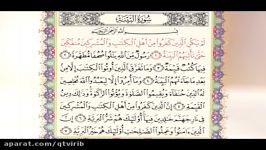 سُورَةُ البَيِّنَةِ
بِسْمِ اللَّهِ الرَّحْمَٰنِ الرَّحِيمِ
لَمْ يَكُنِ الَّذِينَ كَفَرُوا مِنْ أَهْلِ الْكِتَٰبِ وَالْمُشْرِكِينَ مُنفَكِّينَ
حَتَّىٰ تَأْتِيَهُمُ الْبَيِّنَةُ ١ رَسُولٌ مِّنَ اللَّهِ يَتْلُوا صُحُفًا مُّطَهَّرَةً ٢
فِيهَا كُتُبٌ قَيِّمَةٌ ٣ وَمَا تَفَرَّقَ الَّذِينَ أُوتُوا الْكِتَٰبَ إِلَّا مِنۢ
بَعْدِ مَا جَآءَتْهُمُ الْبَيِّنَةُ ٤ وَمَآ أُمِرُوٓا إِلَّا لِيَعْبُدُوا اللَّهَ مُخْلِصِينَ
لَهُ الدِّينَ حُنَفَآءَ وَيُقِيمُوا الصَّلَوٰةَ وَيُؤْتُوا الزَّكَوٰةَ وَذَٰلِكَ دِينُ
الْقَيِّمَةِ ٥ إِنَّ الَّذِينَ كَفَرُوا مِنْ أَهْلِ الْكِتَٰبِ وَالْمُشْرِكِينَ
فِي نَارِ جَهَنَّمَ خَٰلِدِينَ فِيهَآ أُولَٰٓئِكَ هُمْ شَرُّ الْبَرِيَّةِ ٦
إِنَّ الَّذِينَ ءَامَنُوا وَعَمِلُوا الصَّٰلِحَٰتِ أُولَٰٓئِكَ هُمْ خَيْرُ الْبَرِيَّةِ ٧
aparat.com/qtvirib
aparat.com/qtvirib